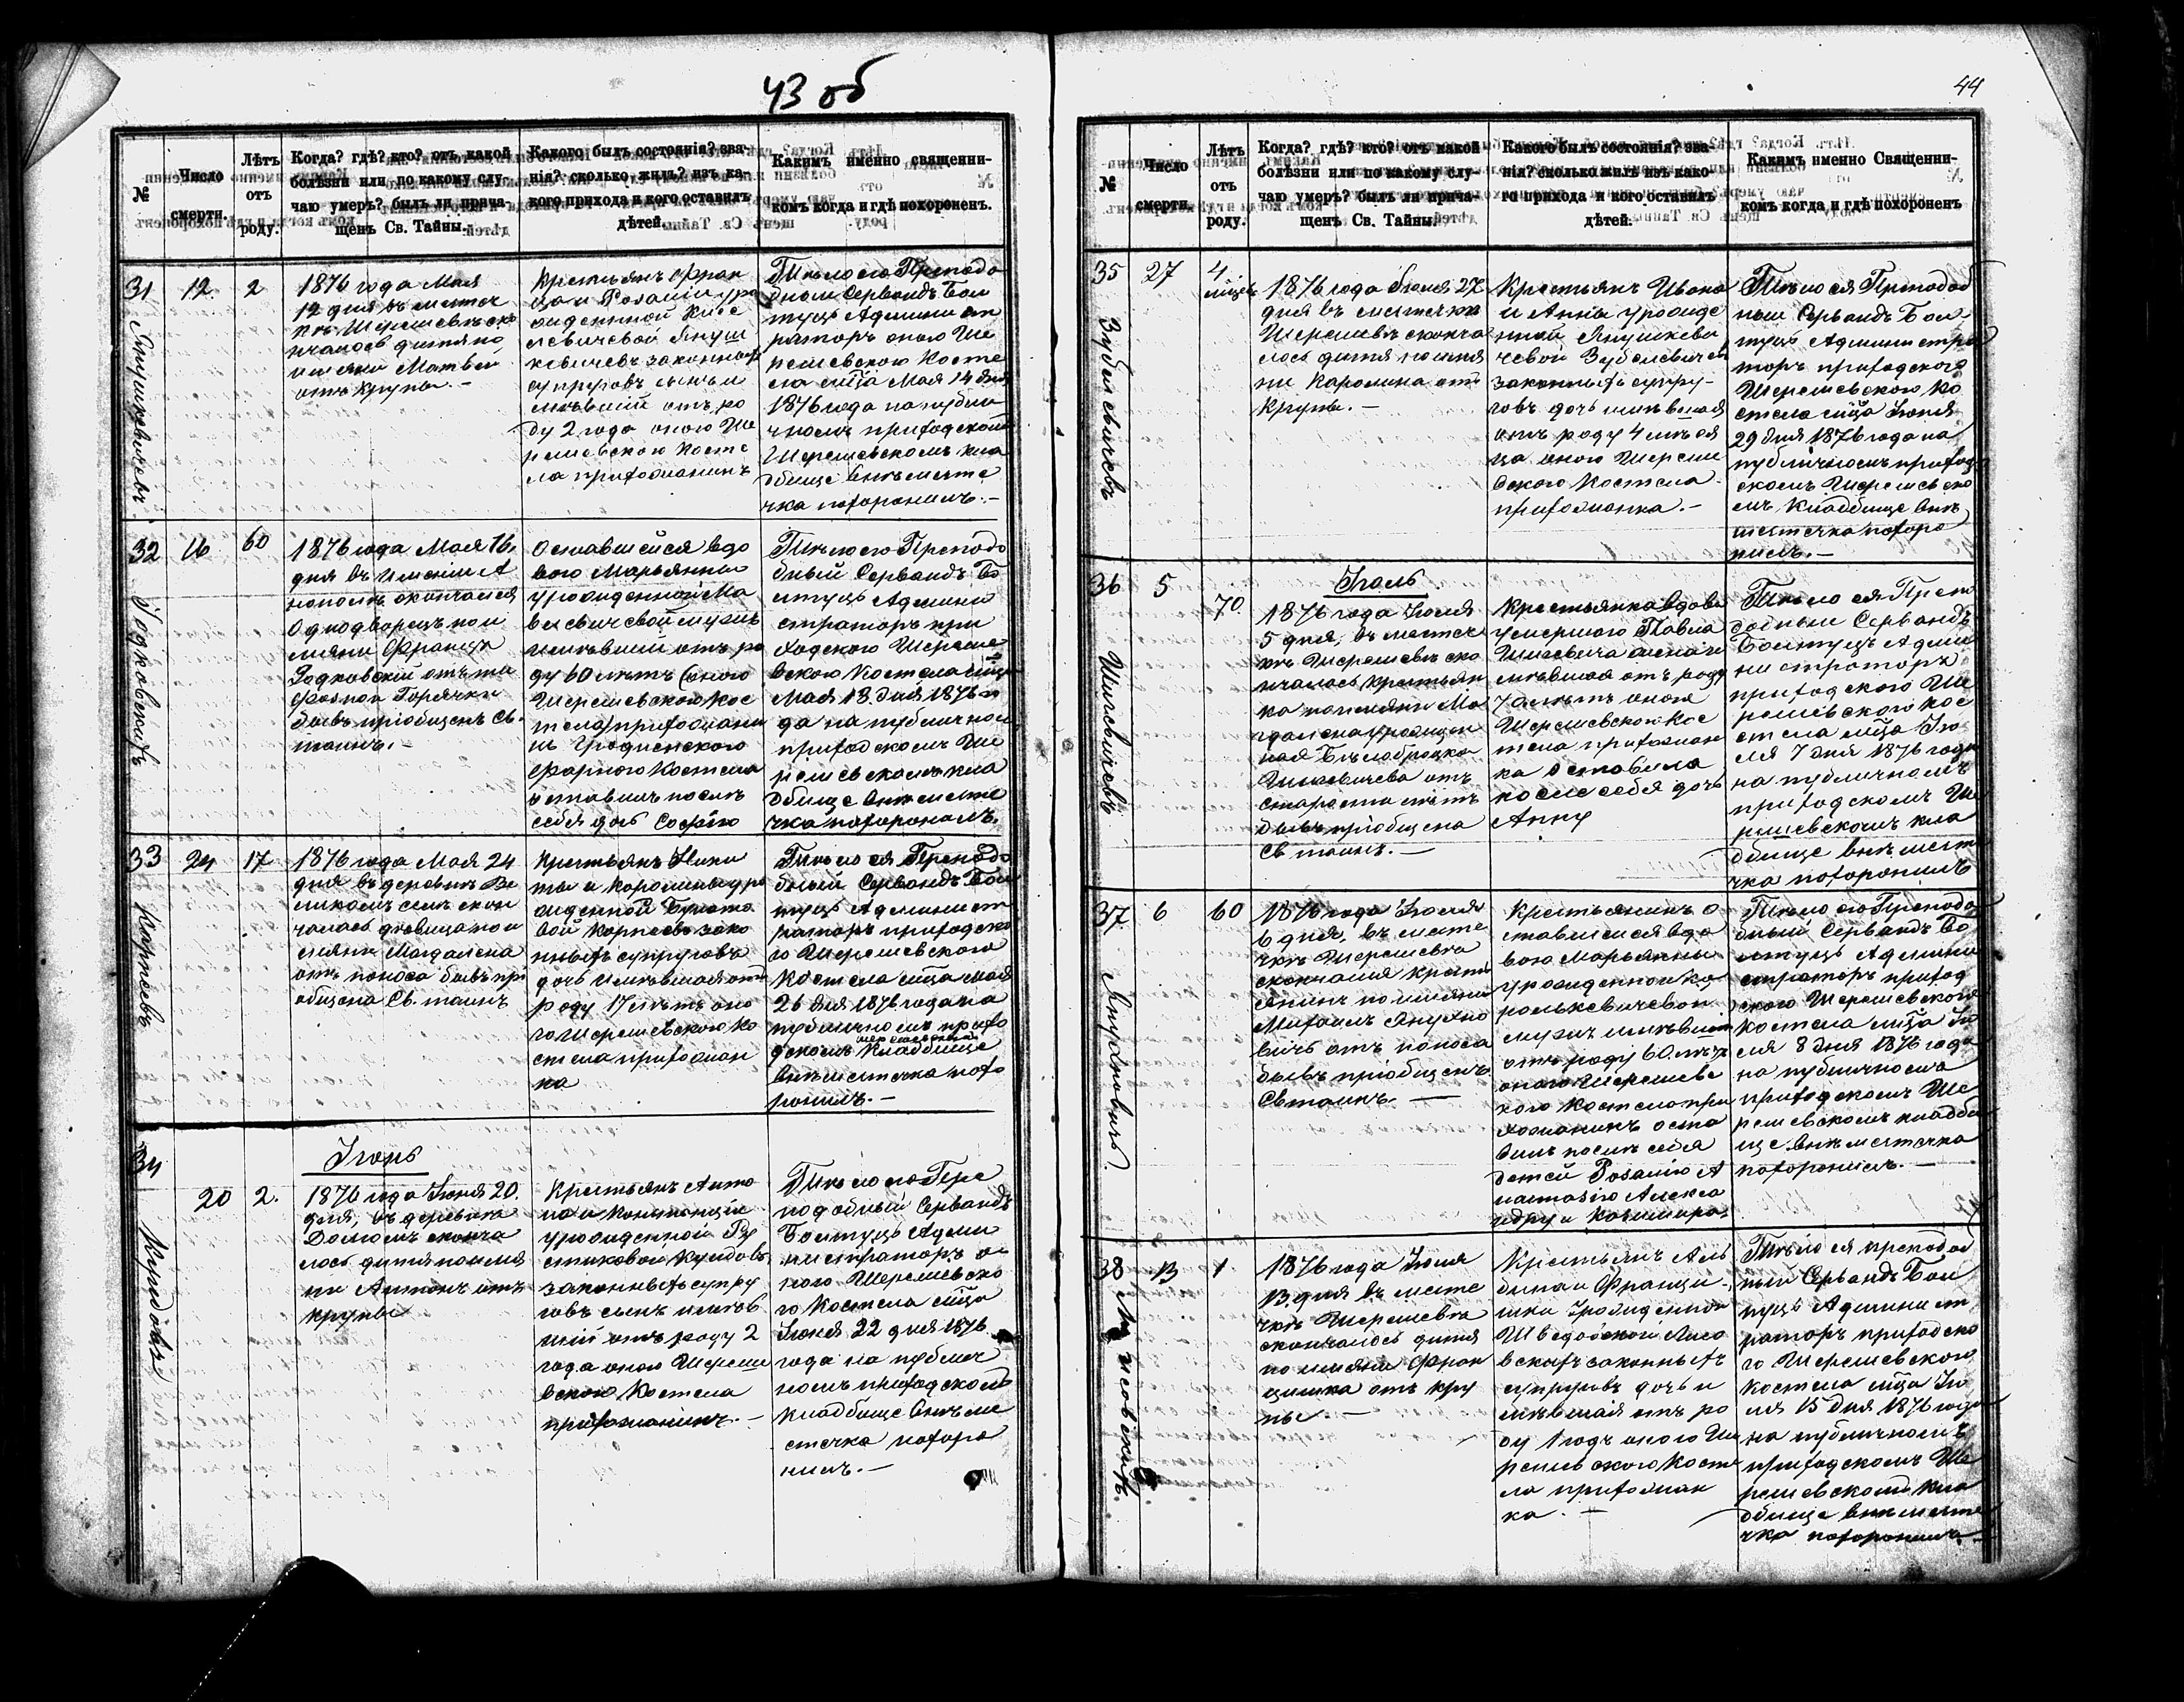 43 об
№
Число смерти.
Лѣтъ отъ роду.
Когда? гдѣ? кто? отъ какой
болѣзни или по какому слу-
чаю умеръ? былъ ли прича-
щенъ Св. Тайны.
Какого былъ состоянія? зва-
нія? сколько жилъ? изъ ка-
кого прихода и кого оставилъ
дѣтей.
Какимъ именно священни-
комъ когда и гдѣ похороненъ.
31
Янушкевичевъ
12.
2
1876 года Мая
12 дня въ местеч
кѣ Шерешевѣ ско
нчалось дитя по
имяни Матвей
отъ крупы. —
Крестьянъ Фран
ца и Розаліи уро
жденной Кисе
левичевой Януш
кевичевъ законныхъ
супруговъ сынъ и
мѣвшій отъ ро
ду 2 года оного Ше
решевского Косте
ла прихожанинъ
Тѣло его Преподо
бный Сервандъ Бол
туць Админист
раторъ оного Ше
решевского Косте
ла мца Мая 14 дня
1876 года на публи
чномъ приходскомъ
Шерешевскомъ кла
дбище внѣ месте
чка похоронилъ. —
32
Годковскихъ
16
60
1876 года Мая 16.
дня въ имѣніи А
скончался
Однодворецъ по и
мяни Францъ
Годковскій отъ ти
фозной Горячки
бывъ пріобщенъ Св.
таинъ. —
Оставшейся вдо
вою Марьянны
урожденной Ма
мужъ
имѣвшій отъ ро
ду 60 лѣтъ оного
Шерешевского Кос
тела прихожани
нъ Гродненского
Фарного Костела
оставилъ послѣ
себя дочь Софію
Тѣло его Преподо
бный Сервандъ Бо
лтуць Админи
страторъ при
ходского Шереше
вского Костела мца
Мая 18 дня 1876 го
да на публичном
приходскомъ Ше
решевскомъ кла
дбище внѣ месте
чка похоронилъ.
33
Корнеевъ
24
17
1876 года Мая 24
дня въ деревнѣ Ве
ликомъ селѣ скон
чалась девица по и
мяни Магдалена
отъ поноса бывъ прі
общена Св. таинъ
Крестьянъ Ники
ты и Каролины уро
жденной
вой Корнеевъ зако
нныхъ супруговъ
дочь имѣвшая отъ
роду 17 лѣтъ оно
го Шерешевского Ко
стела прихожан
ка
Тѣло ея Преподо
бный Сервандъ Бол
туць Админист
раторъ приходско
го Шерешевского
Костела мца Мая
26 дня 1876 года на
публичномъ прихо
дскомъ Шерешевскомъ Кладбище
внѣ местечка похо
ронилъ. —
Іюнь
34
20
2.
1876 года Іюня 20.
дня, въ деревни
сконча
лось дитя по имя
ни Антонъ отъ
крупы
Крестьянъ Анто
на и Констанціи
урожденной
законныхъ супру
говъ сынъ имѣв
шій отъ роду 2
года оного Шереше
вского Костела
прихожанинъ. —
Тѣло его Пре
подобный Сервандъ
Болтуць Адми
нистраторъ о
ного Шерешевско
го Костела мца
Іюня 22 дня 1876
года на публич
номъ приходскомъ
кладбище внѣ ме
стечка похоро
нилъ. —
44
№
Число смерти
Лѣтъ отъ роду.
Когда? гдѣ? кто? отъ какой
болѣзни или по какому слу-
чаю умеръ? былъ ли прича-
щенъ Св. Тайны.
Какого былъ состоянія? зва-
нія? сколько жилъ изъ како-
го прихода и кого оставилъ
дѣтей.
Какимъ именно Священни-
комъ когда и гдѣ похороненъ
35
Зубелевичевъ
27
4
мцев
1876 года Іюня 27
дня въ местечкѣ
Шерешевѣ сконча
лось дитя по имя
ни Каролина отъ
Крупы. —
Крестьянъ Ивана
и Анны урожде
нной Янушкеви
чевой Зубелевичевъ
законныхъ супру-
говъ дочь имѣвшая
отъ роду 4 мѣся
ца оного Шереше
вского Костела
прихожанка. —
Тѣло ея Преподоб
ный Сервандъ Бол-
туць Администра
торъ приходского
Шерешевского Ко
стела мца Іюня
29 дня 1876 года на
публичномъ приход
скомъ Шерешевско
мъ Кладбище внѣ
местечка похоро
нилъ. —
Іюль
36
5
70.
1876 года Іюля
5 дня, въ местеч
кѣ Шерешевѣ ско
нчалась крестьян
ка по имяни Ма
гдалена урожден
ная Бѣлоброцка
отъ
старости лѣтъ
бывъ пріобщена
Св таинъ. —
Крестьянка вдова
умершого Павла
имѣвшая отъ роду
70 лѣтъ оного
Шерешевского Кос
тела прихожан
ка оставила
после себя дочь
Анну
Тѣло ея Препо
добный Сервандъ
Болтуць Адми
нистраторъ
приходского Ше
решевского Кос
тела мца Ію
ля 7 дня 1876 года
на публичномъ
приходскомъ Ше
решевскомъ кла
дбище внѣ мест
чка похоронилъ
37
Янухновичъ
6
60
1876 года Іюля
6 дня, въ месте
чкѣ Шерешевѣ
скончался крестья
янинъ по имяни
Михаилъ Янухно
вичъ отъ поноса
бывъ пріобщенъ
Св таинъ. —
Крестьянинъ о
ставшейся вдо
вою Марьянны
урожденной Ка
рольkевичевой
мужъ имѣвшій
отъ роду 60 лѣтъ
оного Шерешевс
кого Костела при
хожанинъ оста
вилъ послѣ себя
детей Розалію А
настазію Алекса
ндру и Казимира.
Тѣло его Преподо
бный Сервандъ Бо
лтуць Админи
страторъ приход
ского Шерешевского
Костела мца Ію
ля 8 дня 1876 года
на публичномъ
приходскомъ Ше
решевскомъ кладби
ще внѣ местечка
похоронилъ. —
38
Лисовскихъ
13
1
1876 года Іюля
13 дня въ месте
чкѣ Шерешевѣ
скончалось дитя
по имяни Фран
цишка отъ кру
пы. —
Крестьянъ Аль
бина и Франци-
шки урожденной
Шведовской Лисо
вскихъ законныхъ
супруговъ дочь и
мѣвшая отъ ро
ду 1 годъ оного Ше
решевского Косте
ла прихожан
ка. —
Тѣло ея преподоб
ный Сервандъ Бол
туць Админист
раторъ приходско
го Шерешевского
Костела мца Ію
ля 15 дня 1876 года
на публичномъ
приходскомъ Ше
решевскомъ кла
дбище внѣ месте
чка похоронилъ. —